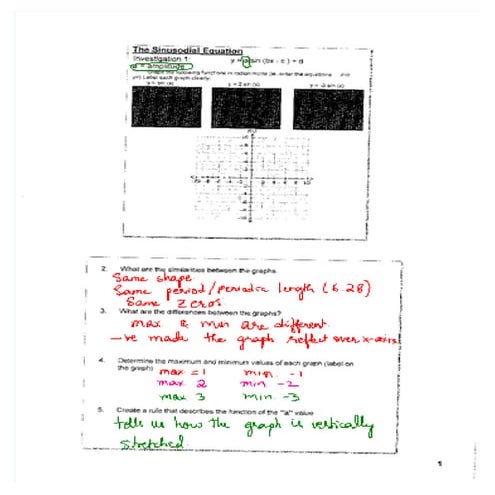 The Sinusodial Equation
Investigation 1:
y = a sin (bx - c) + d
a = amplitude
Graph the following functions in radian mode
Label each graph clearly.
y = sin (x)
y = 2 sin (x)
y = -3 sin (x)
2. What are the similarities between the graphs
Same shape
Same period/periodic length (6.28)
Same zeros.
3. What are the differences between the graphs?
max & min are different.
-ve made the graph reflect over x-axis
4. Determine the maximum and minimum values of each graph (label on
the graph)
max = 1 min. -1
max 2 min -2
max 3 min. -3
5. Create a rule that describes the function of the "a" value
tells us how the graph is vertically
stretched.
1